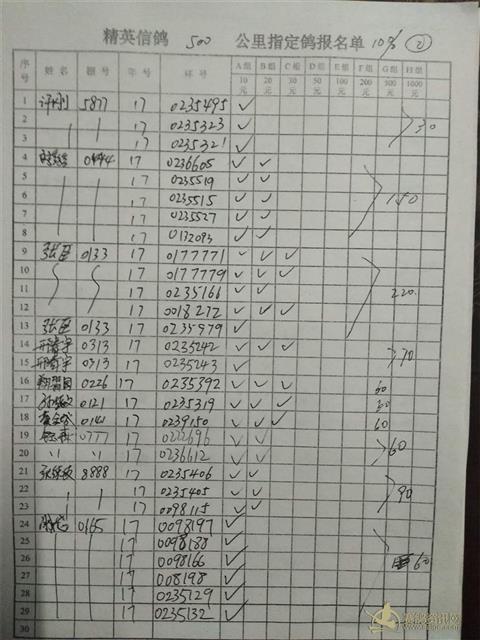 精英信鸽 500 公里指定鸽报名单 10% ②
序号 姓名 棚号 年号 环号 A组10元 B组20元 C组30元 D组50元 E组100元 F组200元 G组500元 H组1000元
1 许刚 5877 17 0235495 ✓
2 17 0235323 ✓ 30
3 17 0235321 ✓
4 17 0236605 ✓ ✓
5 17 0235519 ✓ ✓
6 17 0235515 ✓ ✓ 150
7 17 0235527 ✓ ✓
8 17 0132093 ✓ ✓
9 张臣 0133 17 0177771 ✓ ✓ ✓
10 17 0177779 ✓ ✓ ✓
11 17 0235166 ✓ ✓ 220
12 17 0018272 ✓ ✓ ✓
13 张臣 0133 17 0235979 ✓
14 0313 17 0235242 ✓ ✓ ✓ 70
15 0313 17 0235243 ✓
16 0226 17 0235392 ✓ ✓ ✓ 60
17 0121 17 0235319 ✓ ✓ ✓ 60
18 0141 17 0239150 ✓ ✓ ✓ 60
19 0777 17 0222696 ✓ ✓ 60
20 〃 〃 17 0236612 ✓ ✓
21 8888 17 0235406 ✓ ✓
22 17 0235405 ✓ ✓ 90
23 17 0098115 ✓ ✓
24 0165 17 0098197 ✓
25 17 0098188 ✓
26 17 0098166 ✓ 60
27 17 008198 ✓
28 17 0235129 ✓
29 17 0235132 ✓
30